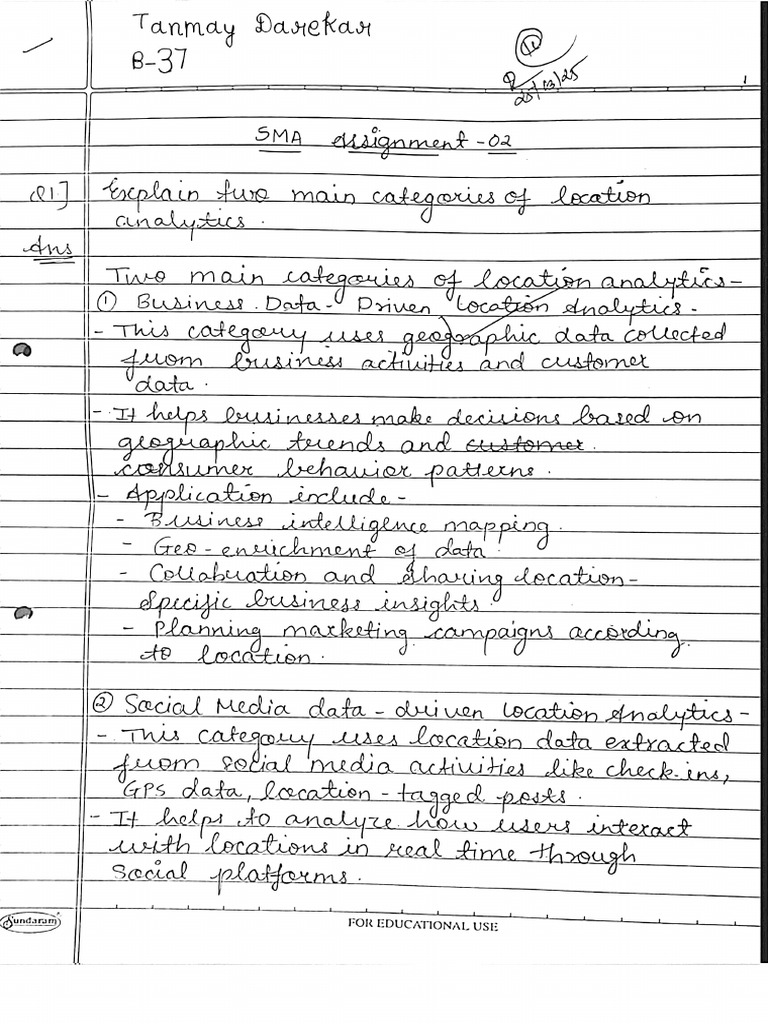 Tanmay Darekar
B-37
20/03/25
1
SMA Assignment - 02
Q1] Explain two main categories of location
analytics.
Ans
Two main categories of location analytics-
① Business Data- Driven Location Analytics-
- This category uses geographic data collected
from business activities and customer
data.
- It helps businesses make decisions based on
geographic trends and customer.
consumer behavior patterns.
- Application include-
- Business intelligence mapping.
- Geo-enrichment of data.
- Collabration and sharing location-
specific business insights.
- Planning marketing campaigns according
to location.
② Social Media data - driven location Analytics-
- This category uses location data extracted
from social media activities like check-ins,
GPS data, location-tagged posts.
- It helps to analyze how users interact
with locations in real time through
social platforms.
Sundaram
FOR EDUCATIONAL USE